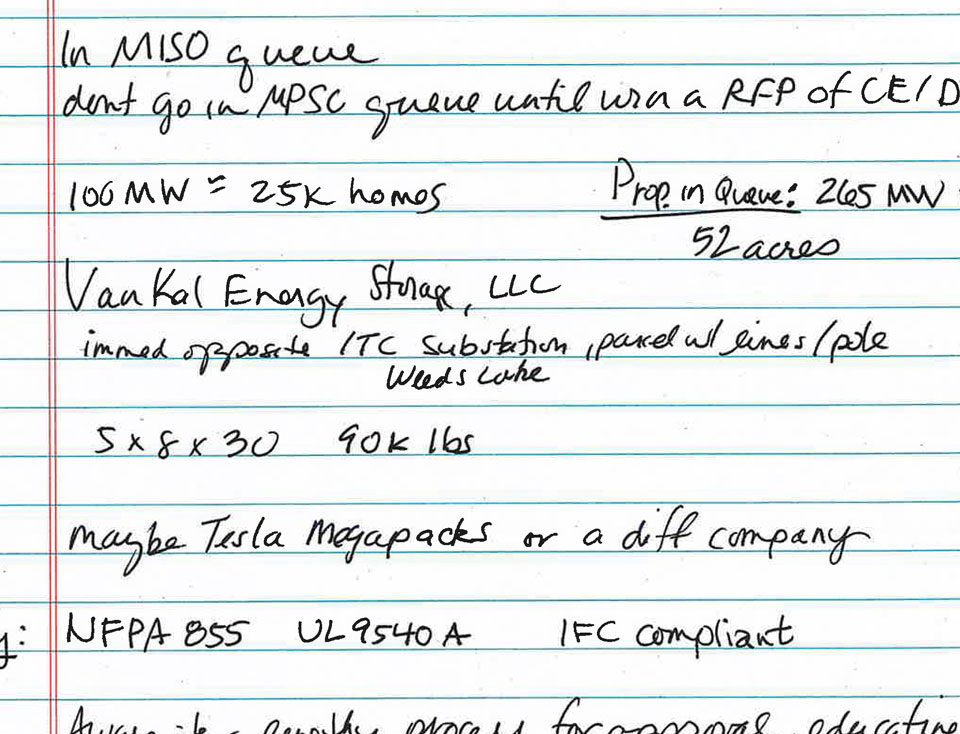 In MISO queue
dont go in MPSC queue until win a RFP of CE/D
100 MW ≈ 25K homes
Prop. in Queue: 265 MW
52 acres
Van Kal Energy Storage, LLC
immed opposite ITC substation, parcel w/ lines/pole
Weeds Lake
5 x 8 x 30 90K lbs
maybe Tesla Megapacks or a diff company
y: NFPA 855 UL9540A IFC compliant
process for approval, educating